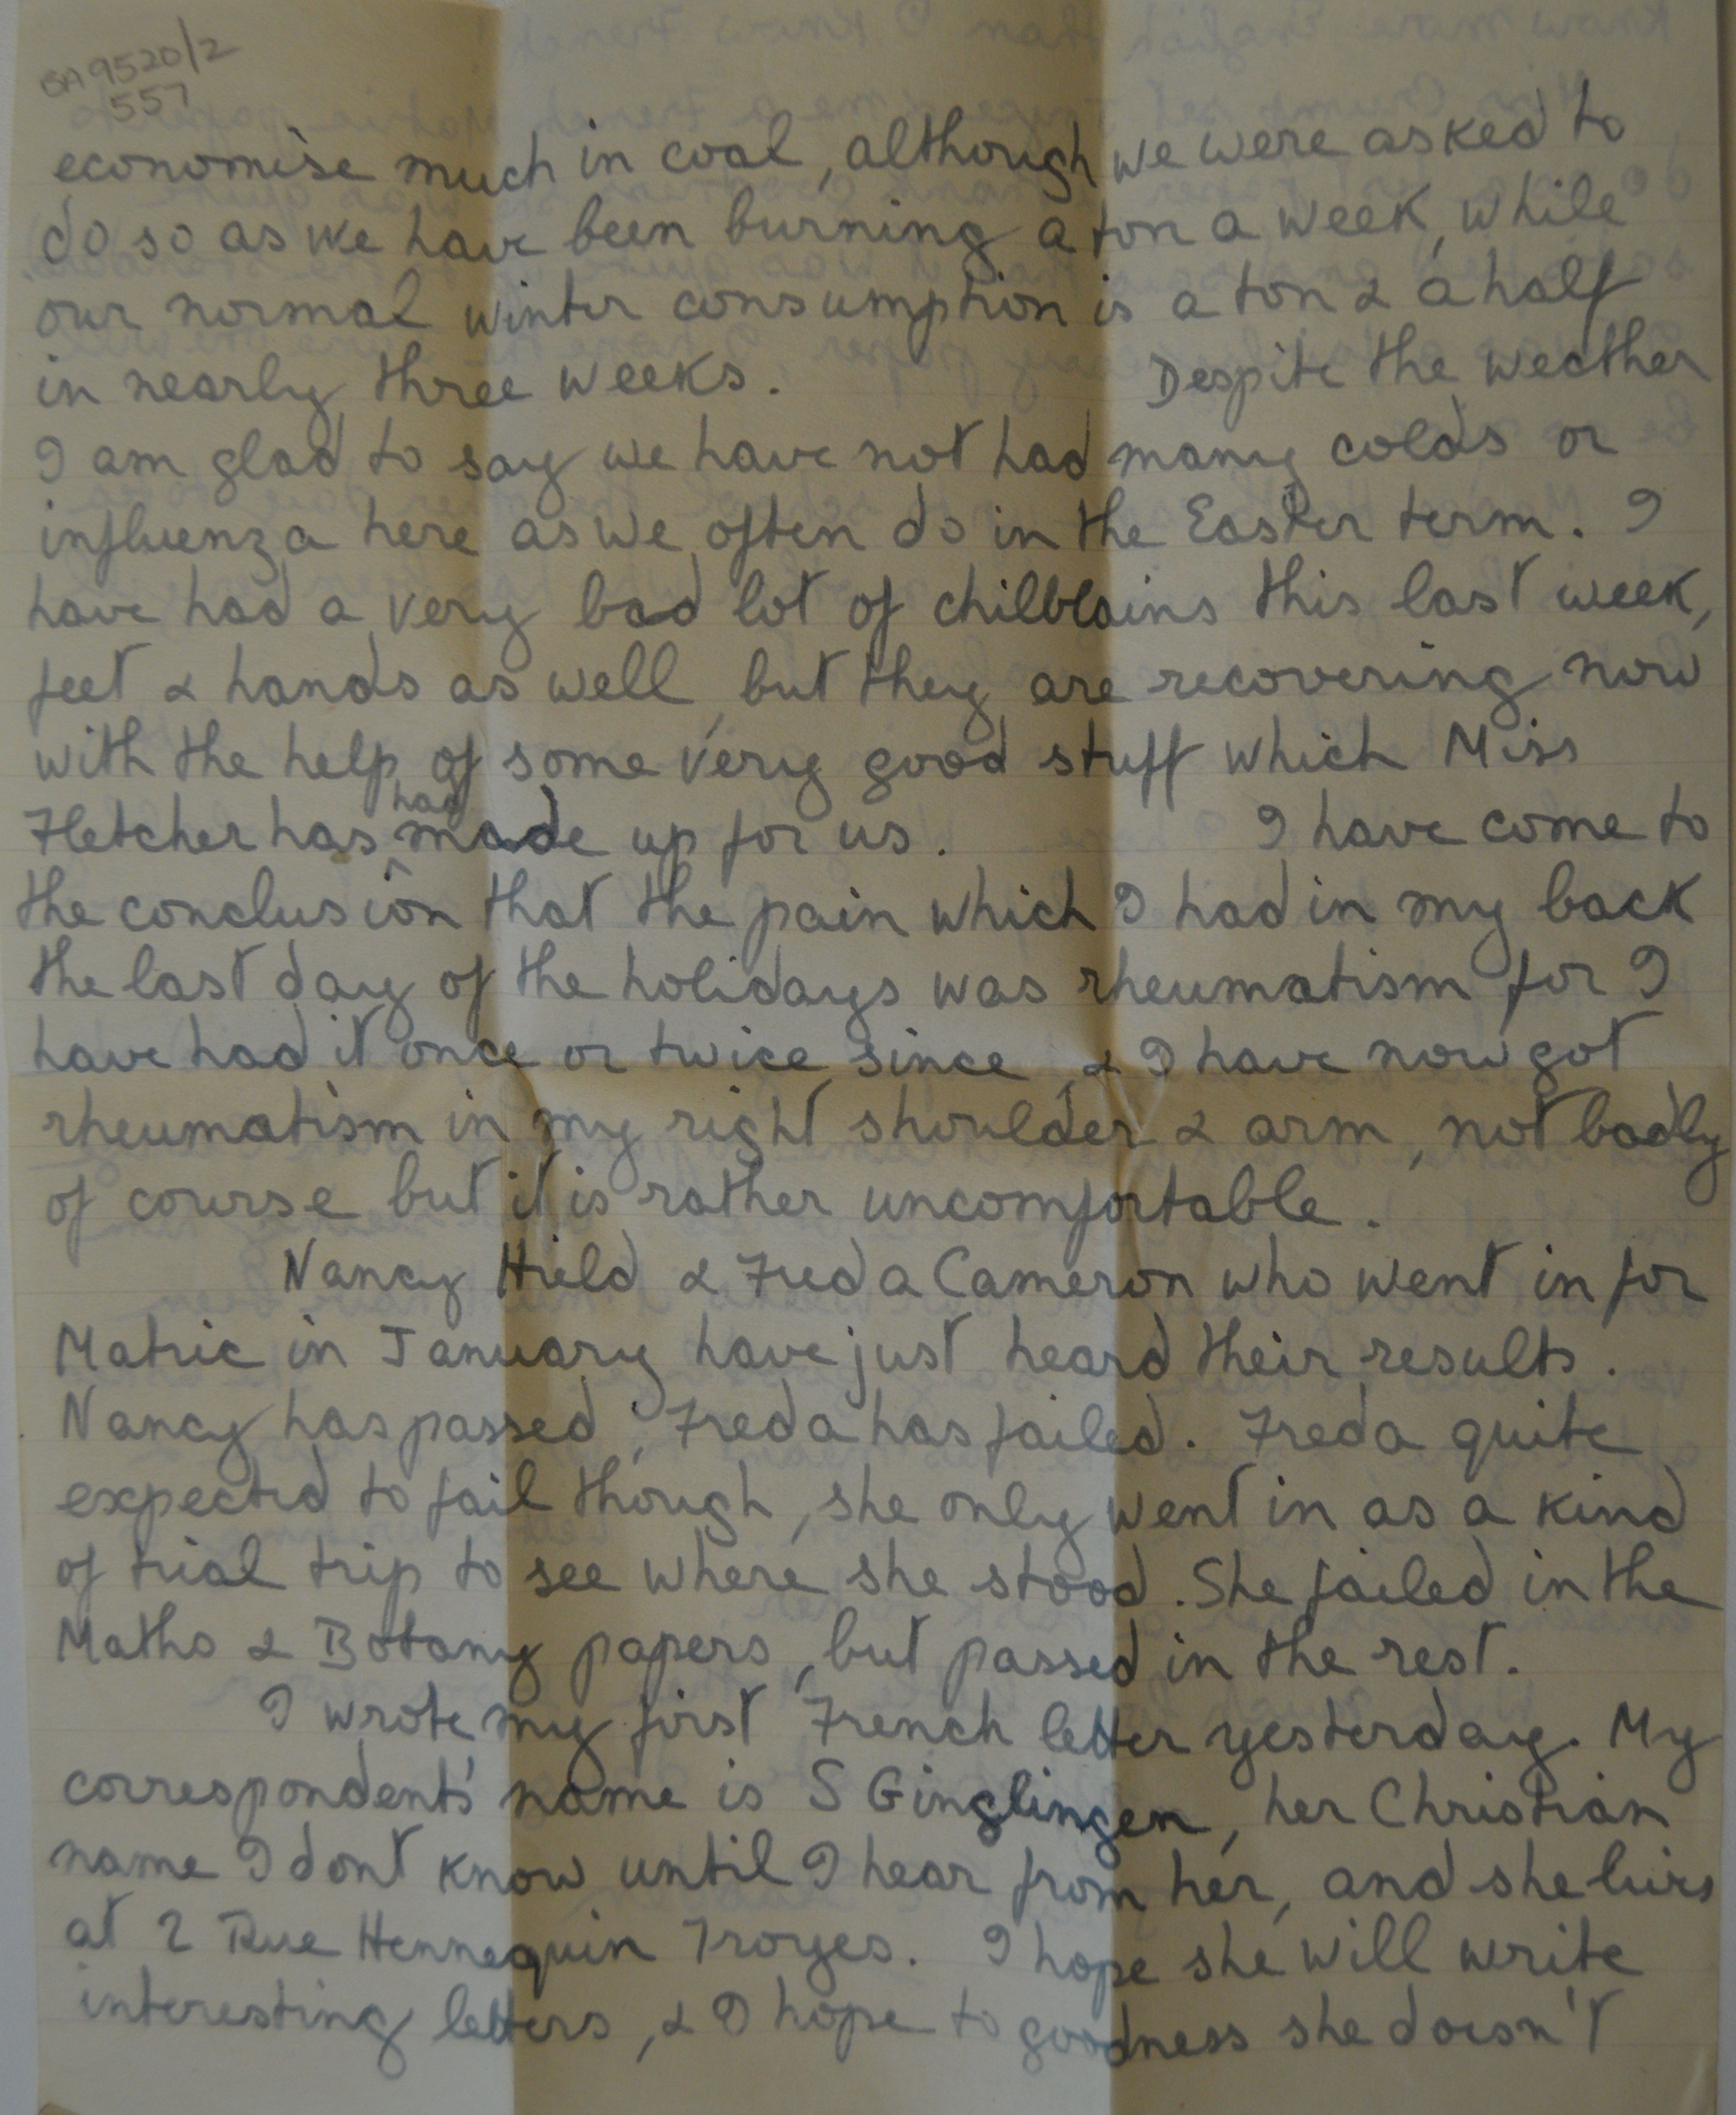 BA9520/2
557
economise much in coal, although we were asked to
do so as we have been burning a ton a week, while
our normal winter consumption is a ton & a half
in nearly three weeks. Despite the weather
I am glad to say we have not had many colds or
influenza here as we often do in the Easter term. I
have had a very bad lot of chilblains this last week,
feet & hands as well, but they are recovering now
with the help of some very good stuff which Miss
had
Fletcher has made up for us. I have come to
the conclusion that the pain which I had in my back
the last day of the holidays was rheumatism for I
have had it once or twice since, & I have now got
rheumatism in my right shoulder & arm, not badly
of course but it is rather uncomfortable.
Nancy Hield & Freda Cameron who went in for
Matric in January have just heard their results.
Nancy has passed, Freda has failed. Freda quite
expected to fail though, she only went in as a kind
of trial trip to see where she stood. She failed in the
Maths & Botany papers, but passed in the rest.
I wrote my first French letter yesterday. My
correspondent's name is S Ginglingen, her Christian
name I dont know until I hear from her, and she lives
at 2 Rue Hennequin Troyes. I hope she will write
interesting letters, & I hope to goodness she doesn't